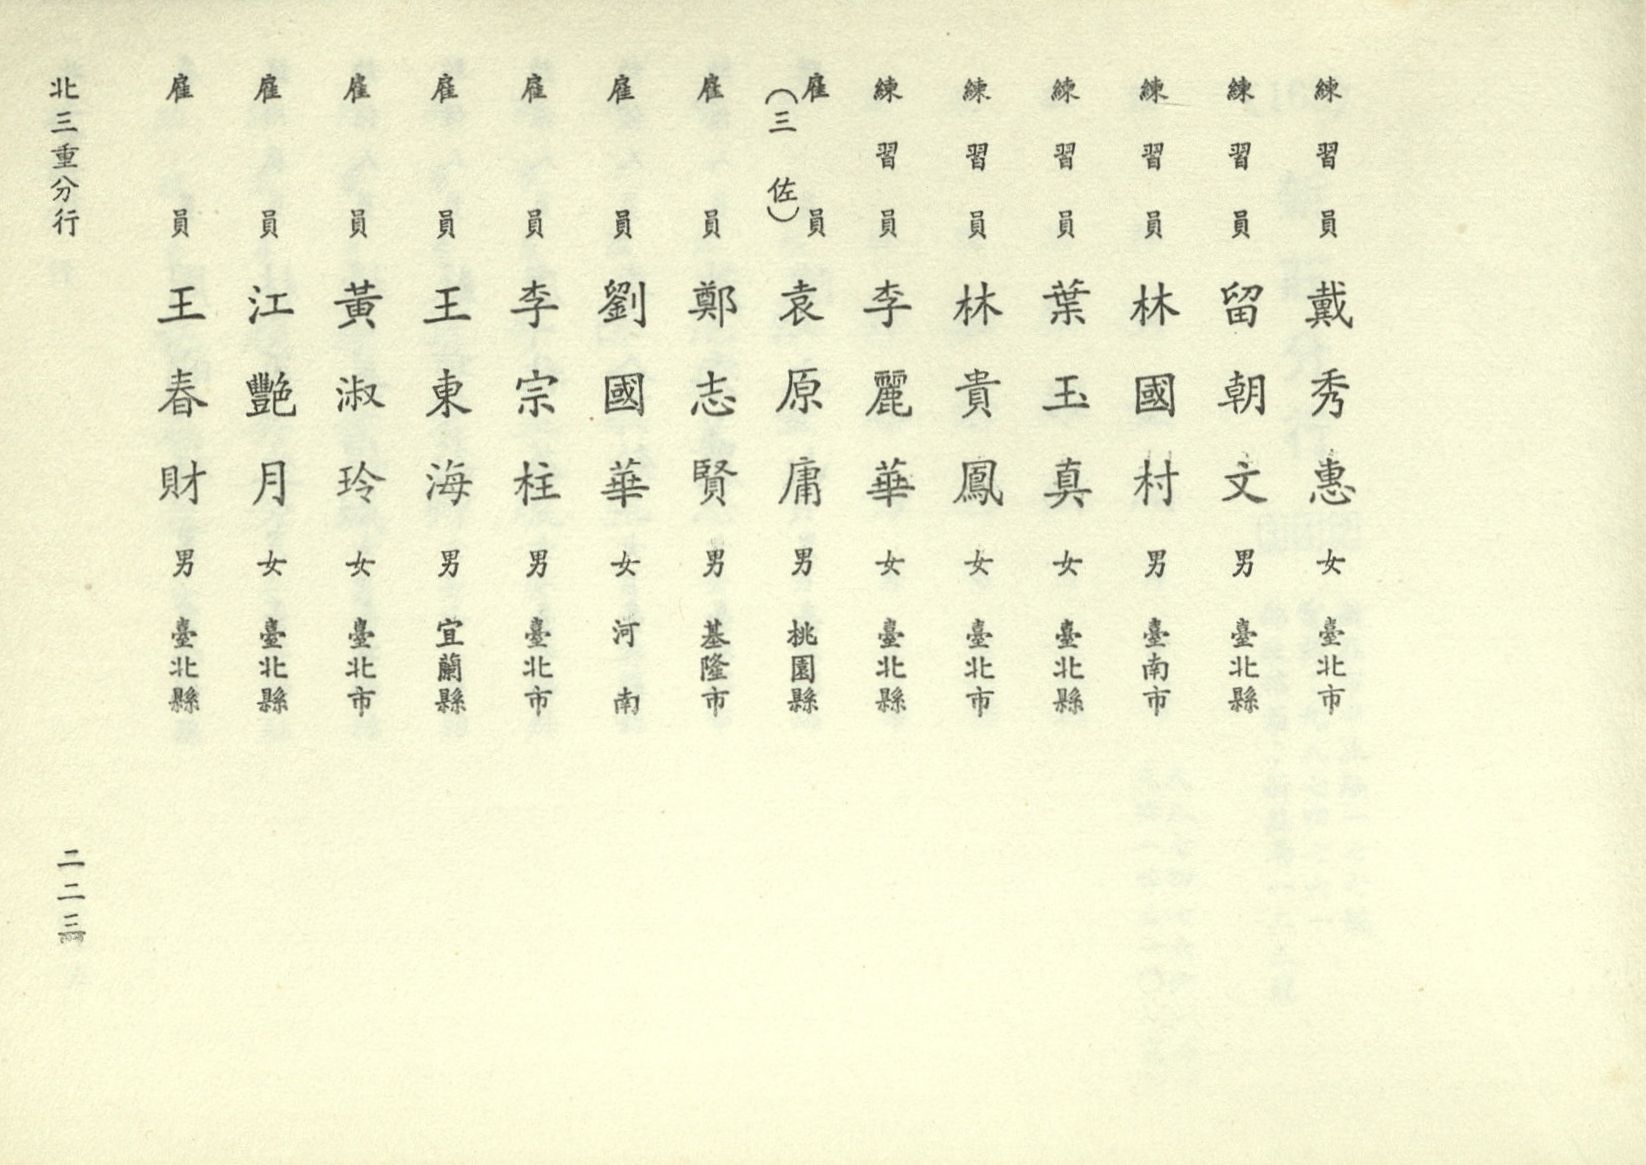 練習員 戴秀惠 女 臺北市
練習員 留朝文 男 臺北縣
練習員 林國村 男 臺南市
練習員 葉玉真 女 臺北縣
練習員 林貴鳳 女 臺北市
練習員 李麗華 女 臺北縣
雇員(三佐) 袁原庸 男 桃園縣
雇員 鄭志賢 男 基隆市
雇員 劉國華 女 河南
雇員 李宗柱 男 臺北市
雇員 王東海 男 宜蘭縣
雇員 黃淑玲 女 臺北市
雇員 江艷月 女 臺北縣
雇員 王春財 男 臺北縣
北三重分行 二二三